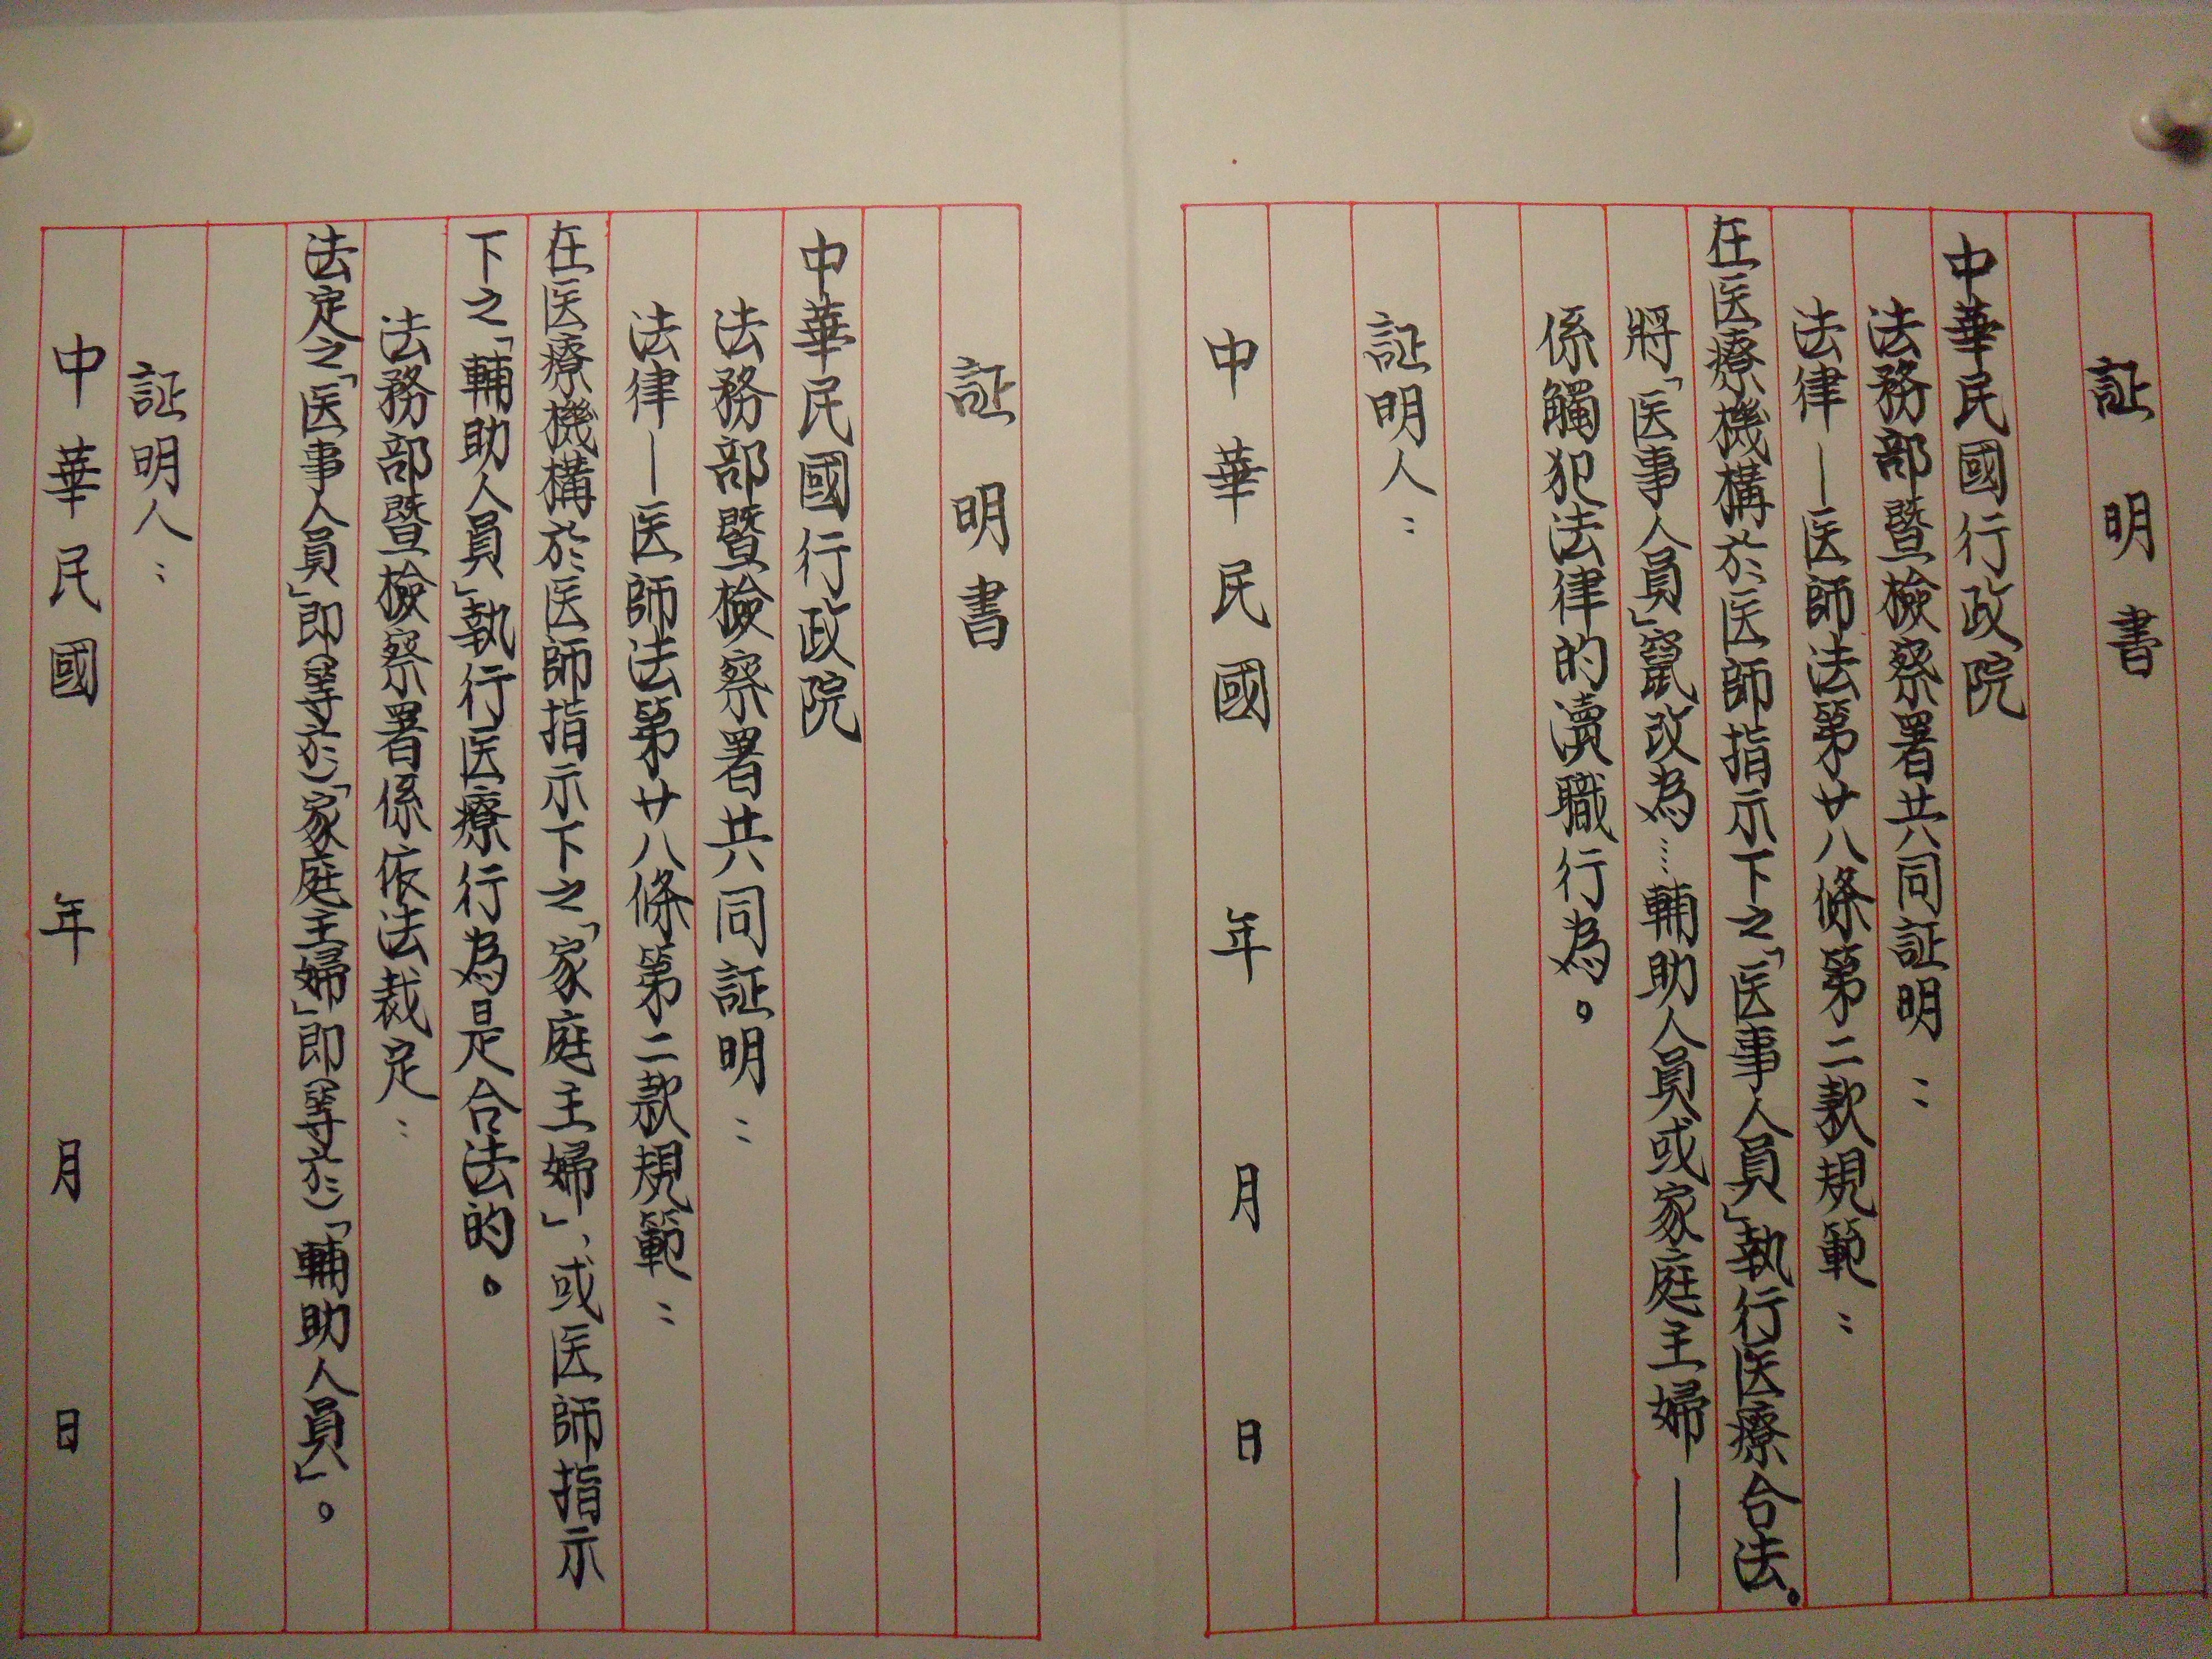 証明書
中華民國行政院
法務部暨檢察署共同証明：
法律—医師法第廿八條第二款規範：
在医療機構於医師指示下之「医事人員」執行医療合法。
將「医事人員」竄改為……輔助人員或家庭主婦—
係觸犯法律的瀆職行為。
証明人：
中華民國　年　月　日
証明書
中華民國行政院
法務部暨檢察署共同証明：
法律—医師法第廿八條第二款規範：
在医療機構於医師指示下之「家庭主婦」，或医師指示
下之「輔助人員」執行医療行為是合法的。
法務部暨檢察署係依法裁定：
法定之「医事人員」即（等於）「家庭主婦」即（等於）「輔助人員」。
証明人：
中華民國　年　月　日